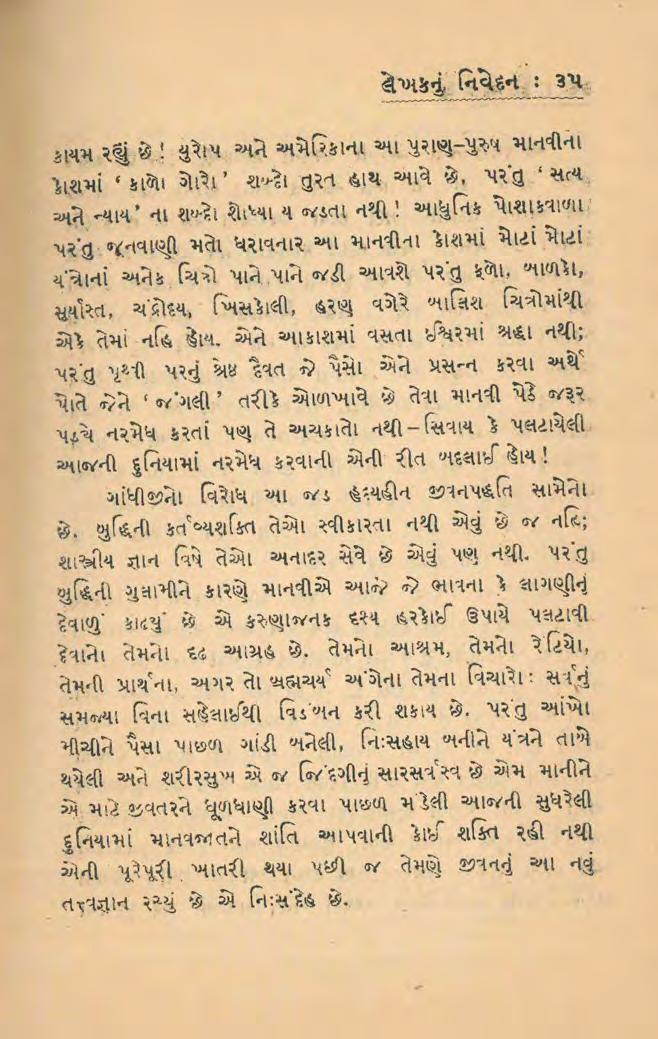 લેખકનું નિવેદન : ૩૫
કાયમ રહ્યું છે ! યુરોપ અને અમેરિકાના આ પુરાણ-પુરુષ માનવીના
કોશમાં ‘ કાળો ગોરો ’ શબ્દો તુરત હાથ આવે છે, પરંતુ ‘ સત્ય
અને ન્યાય ’ ના શબ્દો શોધ્યા ય જડતા નથી ! આધુનિક પોશાકવાળા
પરંતુ જૂનવાણી મતો ધરાવનાર આ માનવીના કોશમાં મોટાં મોટાં
યંત્રોનાં અનેક ચિત્રો પાને પાને જડી આવશે પરંતુ ફૂળો, બાળકો,
સુર્યાસ્ત, ચંદ્રોદય, ખિસકોલી, હરણ વગેરે બાલિશ ચિત્રોમાંથી
એકે તેમાં નહિ હોય. એને આકાશમાં વસતા ઈશ્વરમાં શ્રદ્ધા નથી;
પરંતુ પૃથ્વી પરનું શ્રેષ્ઠ દૈવત જે પૈસો એને પ્રસન્ન કરવા અર્થે
પોતે જેને ‘ જંગલી ’ તરીકે ઓળખાવે છે તેવા માનવી પેઠે જરૂર
પડ્યે નરમેધ કરતાં પણ તે અચકાતો નથી – સિવાય કે પલટાયેલી
આજની દુનિયામાં નરમેધ કરવાની એની રીત બદલાઈ હોય !
ગાંધીજીનો વિરોધ આ જડ હૃદયહીન જીવનપદ્ધતિ સામેનો
છે. બુદ્ધિની કર્તવ્યશક્તિ તેઓ સ્વીકારતા નથી એવું છે જ નહિ;
શાસ્ત્રીય જ્ઞાન વિષે તેઓ અનાદર સેવે છે એવું પણ નથી. પરંતુ
બુદ્ધિની ગુલામીને કારણે માનવીએ આજે જે ભાવના કે લાગણીનું
દેવાળું કાઢ્યું છે એ કરુણાજનક દશ્ય હરકોઈ ઉપાયે પલટાવી
દેવાનો તેમનો દૃઢ આગ્રહ છે. તેમનો આશ્રમ, તેમનો રેંટિયો,
તેમની પ્રાર્થના, અગર તો બ્રહ્મચર્ય અંગેના તેમના વિચારો : સર્વનું
સમજ્યા વિના સહેલાઈથી વિડંબન કરી શકાય છે. પરંતુ આંખો
મીચીને પૈસા પાછળ ગાંડી બનેલી, નિઃસહાય બનીને યંત્રને તાબે
થયેલી અને શરીરસુખ એ જ જિંદગીનું સારસર્વસ્વ છે એમ માનીને
એ માટે જીવતરને ધૂળધાણી કરવા પાછળ મંડેલી આજની સુધરેલી
દુનિયામાં માનવજાતને શાંતિ આપવાની કોઈ શક્તિ રહી નથી
એની પૂરેપૂરી ખાતરી થયા પછી જ તેમણે જીવનનું આ નવું
તત્ત્વજ્ઞાન રચ્યું છે એ નિઃસંદેહ છે.